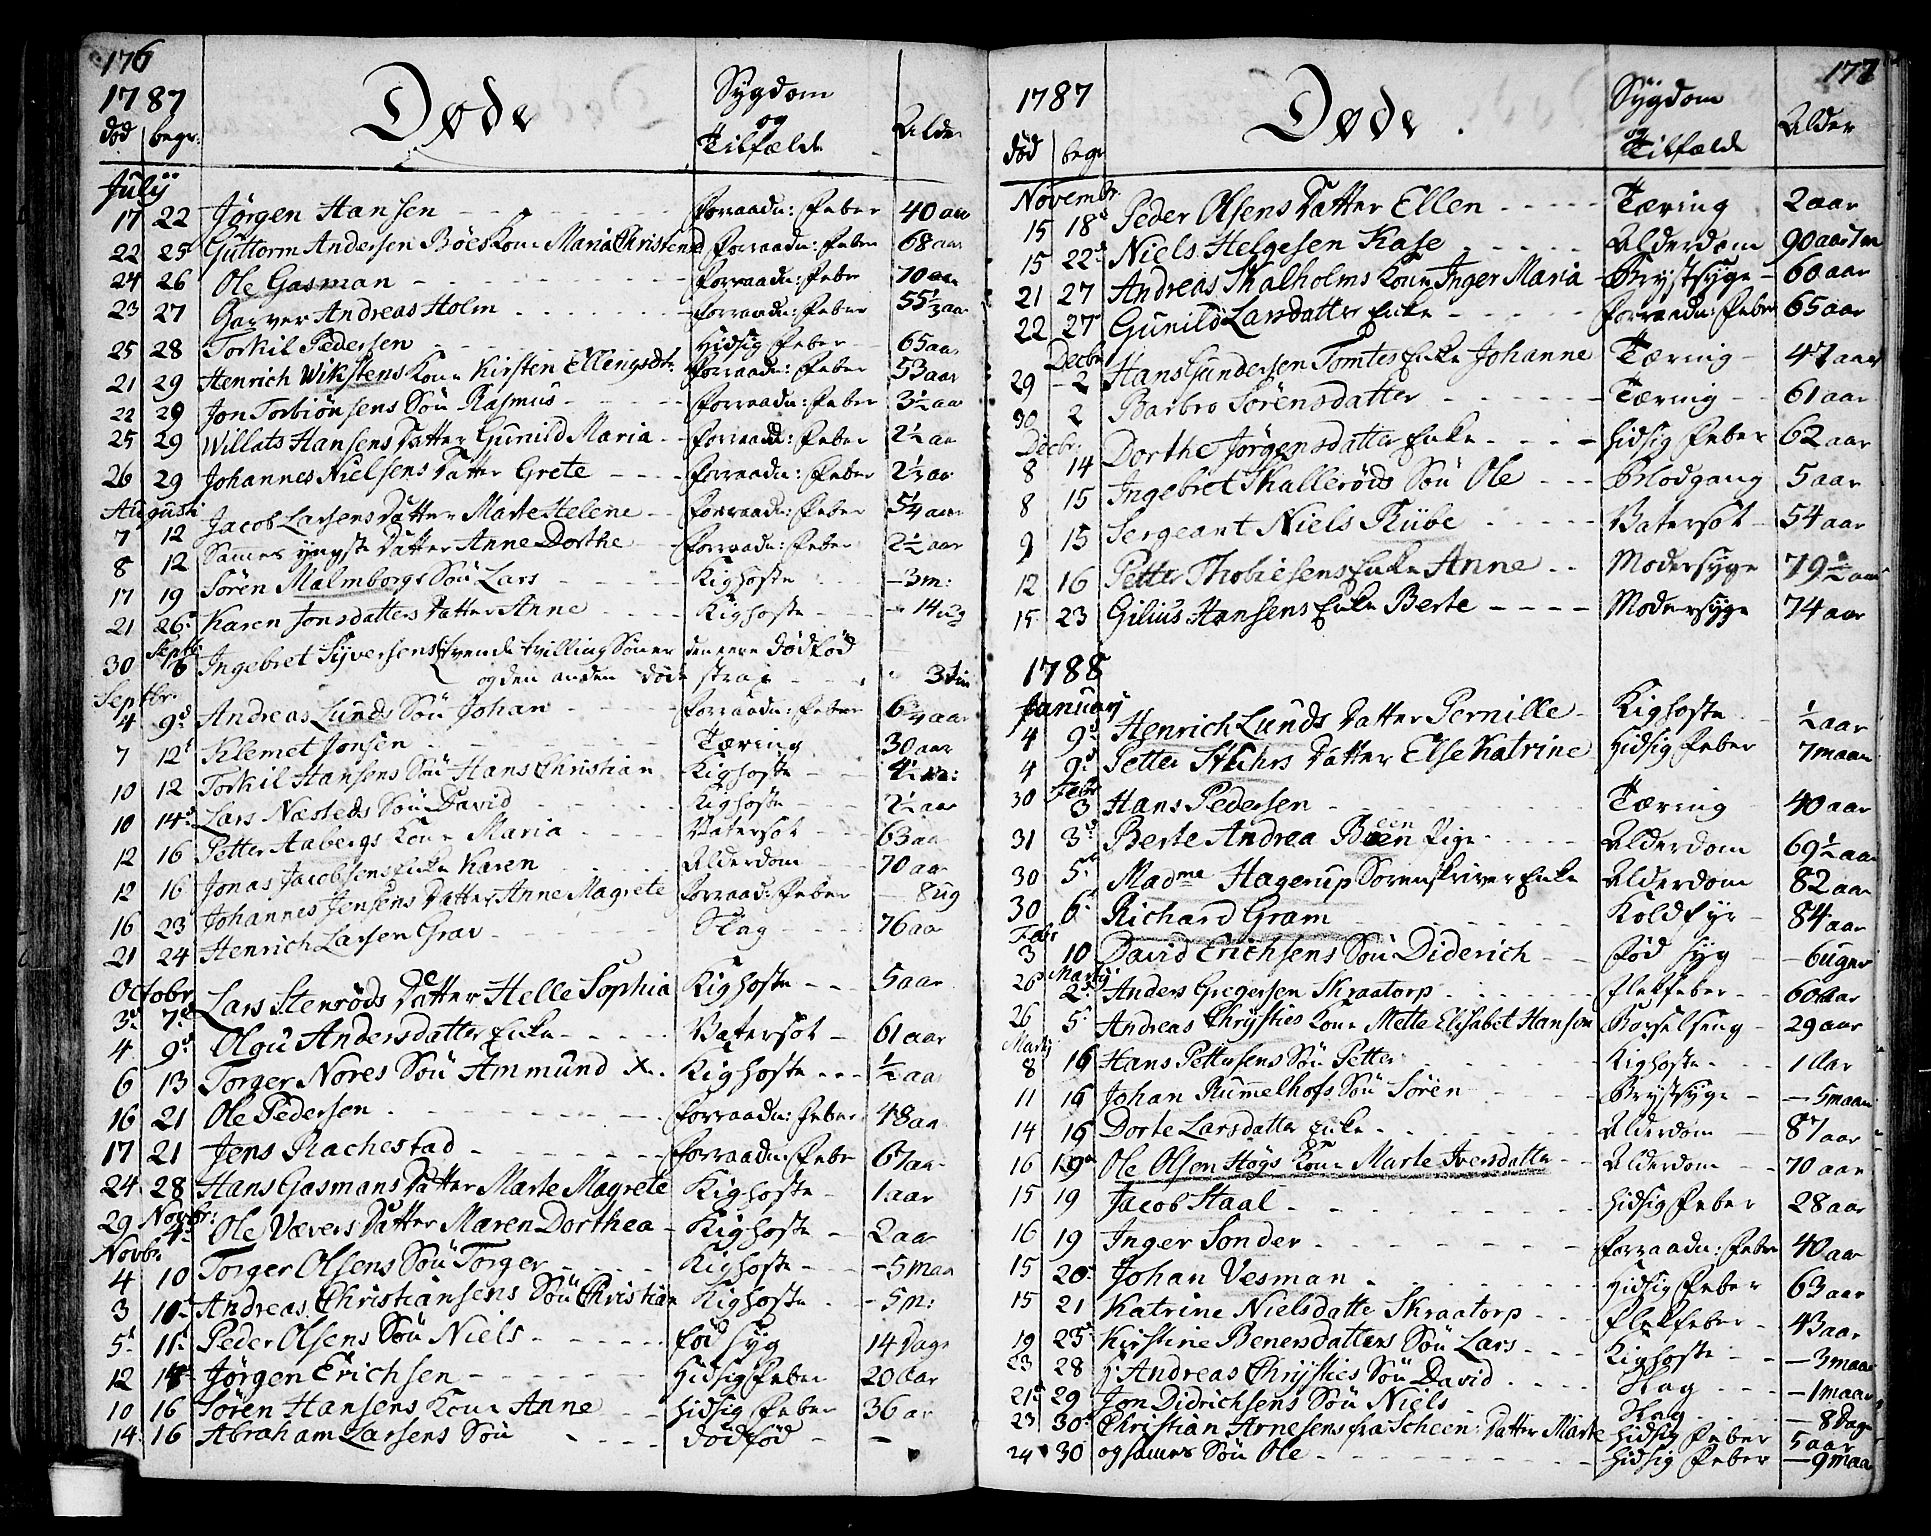 176
1787
Døde
Sygdom og Tilfælde
Alder
død begr:
Julij
17 22 Jørgen Hansen Forraadn: Feber 40 aar
22 25 Guttorm Andersen Böes Kone Maria Christensd Forraadn: Feber 68 aar
24 26 Ole Gasman Forraadn: Feber 70 aar
23 27 Garver Andreas Holm Forraadn: Feber 55 1/3 aar
25 28 Torkil Pedersen Hidsig Feber 65 aar
21 29 Henrich Wikstens Kone Kirsten Ellengsdtr Forraadn: Feber 53 aar
22 29 Jon Torbiönsens Sön Rasmus Forraadn: Feber 3 1/2 aar
25 29 Willats Hansens Datter Gunild Maria Forraadn: Feber 2 1/2 aar
26 29 Johannes Nielsens Datter Grete Forraadn: Feber 2 1/2 aar
Augusti
7 12 Jacob Larsens Datter Marte Helene Forraadn: Feber 5 1/4 aar
8 12 Sames yngste Datter Anne Dorthe Forraadn: Feber 2 1/2 aar
17 19 Sören Malmborgs Sön Lars Kighoste 3 m:
21 26 Karen Jonsdatters Datter Anne Kighoste 14 ug
Septb:
30 16 Ingebret Syversens tvende tvilling Sönner den eene dödföd
og den anden döde strax 3 tim
Septbr.
4 9d Andreas Lunds Sön Johan Forraadn: Feber 6 3/4 aar
7 12t Klemet Jonsen Tæring 30 aar
10 12 Torkil Hansens Sön Hans Christian Kighoste 4 1/2 m:
10 14d Lars Næsteds Sön David Kighoste 2 1/2 aar
12 16 Petter Aabergs Kone Maria Vatersot 63 aa
12 16 Jonas Jacobsens Enke Karen Alderdom 70 aar
16 23 Johannes Jensens Datter Anne Magrete Forraad: Feber 8 ug
21 24 Henrich Larsen Grav Slag 76 aar
Octobr
3d 7d Lars Stensröds Datter Helle Sophia Kighoste 5 aar
4 9d Olgu Andersdatter Enke Vatersot 61 aar
6 13 Torger Nores Sön Ammund x Kighoste 1/2 aa
16 21 Ole Pedersen Forraadn: Feber 48 aar
17 21 Jens Rachestad Forraadn: Feber 67 aar
24 28 Hans Gasmans Datter Marte Magrete Kighoste 1 aar
Novbr:
29 4 Ole Værers Datter Maren Dorthea Kighoste 2 aar
Novbr
4 10 Torger Olsens Sön Torger Kighoste 5 maan
3 10 Andreas Christiansens Sön Christian Kighoste 5 m:
5t 11 Peder Olsens Sön Niels föd syg 14 Dage
12 14 Jørgen Erichsen Hidsig Feber 20 aar
10 16 Sören Hansens Kone Anne Hidsig Feber 36 ar
14 16 Abraham Larsens Sön dödföd
177
1787
Døde.
Sygdom og Tilfælde
Alder
død begr
Novembr.
15 18d Peder Olsens Datter Ellen Tæring 2 aar
15 22 Niels Helgesen Kase Alderdom 90 aar 7 m
21 27 Andreas Skalholms Kone Inger Maria Brystsyge 60 aar
22 27 Gunild Larsdatter Enke Forraadn: Feber 65 aar
Decbr
29 2 Hans Gundersen Tomtes Enke Johanne Tæring 47 aar
30 2 Barbro Sörensdatter Tæring 61 aar
Decbr.
8 14 Dorthe Jörgensdatter Enke Hidsig Feber 62 aar
8 15 Ingebret Skalleröds Sön Ole Blodgang 5 aar
9 15 Sergeant Niels Rübe Vatersot 54 aar
12 16 Petter Thobiesens Enke Anne Modersyge 79 1/2 aar
15 23 Gilius Hansens Enke Berte Modersyge 74 aar
1788
Januarij
4 9d Henrich Lunds Datter Pernille Kighoste 1/2 aar
4 9d Petter Stuhrs Datter Else Katrine Hidsig Feber 7 maan
Febr
30 3 Hans Pedersen Tæring 40 aar
31 3d Berte Andrea Been Pige Alderdom 69 1/2 aar
30 5t Madme Hagerup Sorenskriver Enke Alderdom 82 aar
30 6t Richard Gram Koldfyr 84 aar
Febr
3 10 David Erichsens Sön Diderich föd syg 6 uger
Martij
26 2 Anders Gregersen Skraatorp Flekfeber 60 aar
26 5 Andreas Chrysties Kone Mette Elisabet Hansen Barselseng 29 aar
Martij
8 16 Hans Pettersens Sön Petter Kighoste 1 Aar
11 16 Johan Rummelhofs Sön Sören Brystsyge 5 maan
14 19 Dorte Larsdatter Enke Alderdom 87 aar
16 19d Ole Olsen Högs Kone Marte Iversdatter Alderdom 70 aar
15 19 Jacob Staal Hidsig Feber 28 aar
16 19 Inger Sonder Forraadn: Feber 40 aar
15 20 Johan Vesman Hidsig Feber 63 aar
15 21 Katrine Nielsdatter Skraatorp Flekfeber 43 aar
19 23 Kirstine Benersdatters Sön Lars Kighoste 3 maan
23 28 H Andreas Chrysties Sön David Slag 1 maan
21 29 Jon Didrichsens Sön Niels Slag 8 Dage
23 30 Christian Arnesens fra Scheen: Datter Marte Hidsig Feber 5 aar
24 30 og sames Sön Ole Hidsig Feber 9 maan